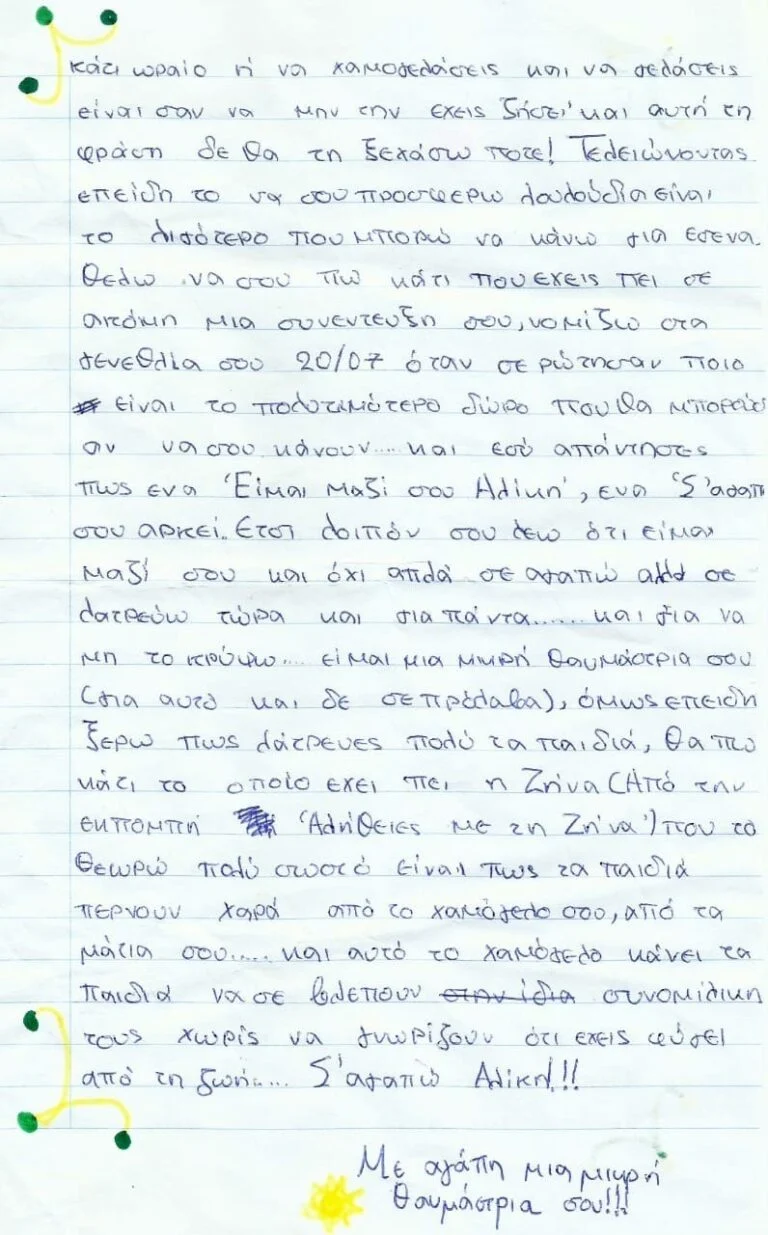 κάτι ωραίο ή να χαμογελάσεις και να γελάσεις
είναι σαν να μην την εχεις ζήσει' και αυτή τη
φράση δε θα τη ξεχάσω ποτε! Τελειώνοντας
επείδη το να σου προσφερω λουλούδια είναι
το λιγότερο που μπορώ να κάνω για εσενα.
Θελω να σου πω κάτι που εχεις πει σε
ακόμη μια συνεντευξη σου, νομίζω στα
γενεθλια σου 20/07 όταν σε ρώτησαν ποιο
είναι το πολυτιμότερο δώρο που θα μπορού
αν να σου κάνουν.... και εσύ απάντησες
πως ενα 'Είμαι μαζί σου Αλίκη', ενα 'Σ'αγαπ
σου αρκεί. Ετσι λοιπόν σου λεω ότι είμαι
μαζί σου και όχι απλά σε αγαπώ αλλα σε
λατρεύω τώρα και για πάντα....... και για να
μη το κρύψω.... είμαι μια μικρή θαυμάστρια σου
(για αυτό και δε σε πρόλαβα), όμως επειδη
ξερω πως λάτρευες πολύ τα παιδιά, θα πω
κάτι το οποίο εχει πει η Ζήνα (Από την
εκπομπή 'Αλήθειες με τη Ζήνα') που το
θεωρώ πολύ σωστό είναι πως τα παιδιά
περνουν χαρά από το χαμόγελο σου, από τα
μάτια σου..... και αυτό το χαμόγελο κάνει τα
παιδιά να σε βλεπουν στην ίδια συνομιλικη
τους χωρίς να γνωρίζουν ότι εχεις φύγει
από τη ζωή.... Σ'αγαπώ Αλίκη!!!
Με αγάπη μια μικρή
θαυμάστρια σου!!!